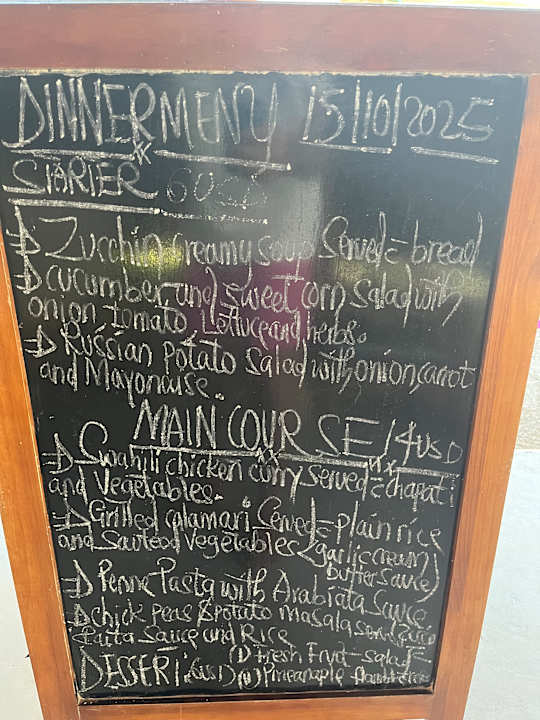 DINNER MENU 15/10/2025
STARTER 6USD
Zucchin creamy soup Served = bread
cucumber, and sweet corn Salad with
onion tomato, Lettuce and herbs.
Russian Potato Salad with onion, carrot
and Mayonaise.
MAIN COURSE/14USD
Swahili chicken curry served = chapati
and Vegetables.
Grilled calamari Served = plain rice
and Sauteed Vegetables (garlic cream)
butter sauce)
Penne Pasta with Arabiata Sauce
chick Peas & potato masala
Raita Sauce and Rice
DESSERT (1) Fresh Fruit salad
Pineapple